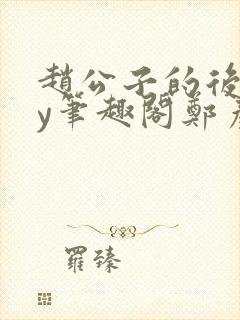 趙公子的後
y筆趣閣鄭
羅臻